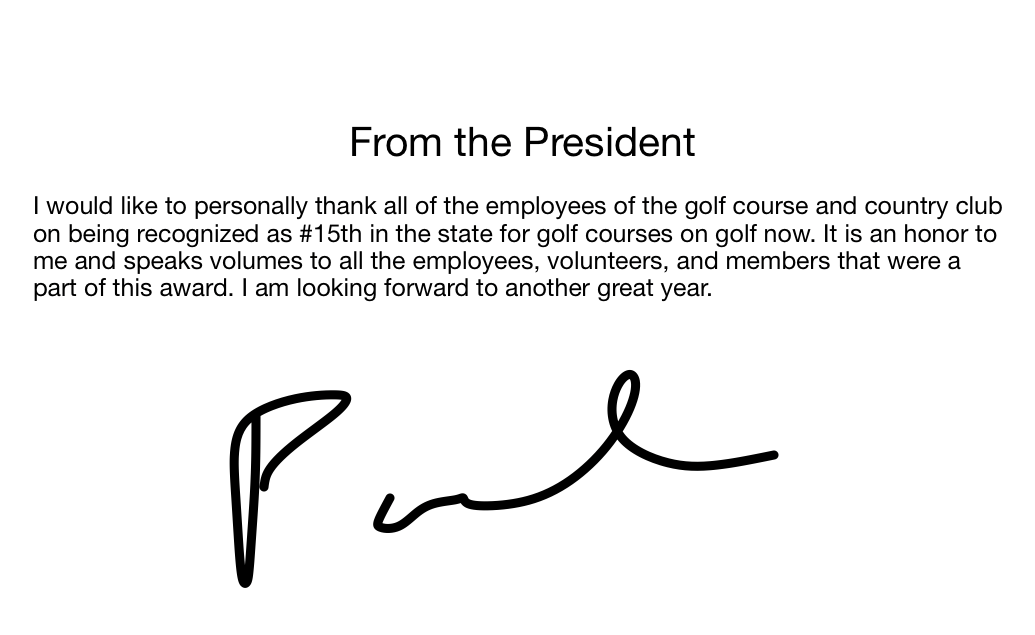 From the President
I would like to personally thank all of the employees of the golf course and country club
on being recognized as #15th in the state for golf courses on golf now. It is an honor to
me and speaks volumes to all the employees, volunteers, and members that were a
part of this award. I am looking forward to another great year.